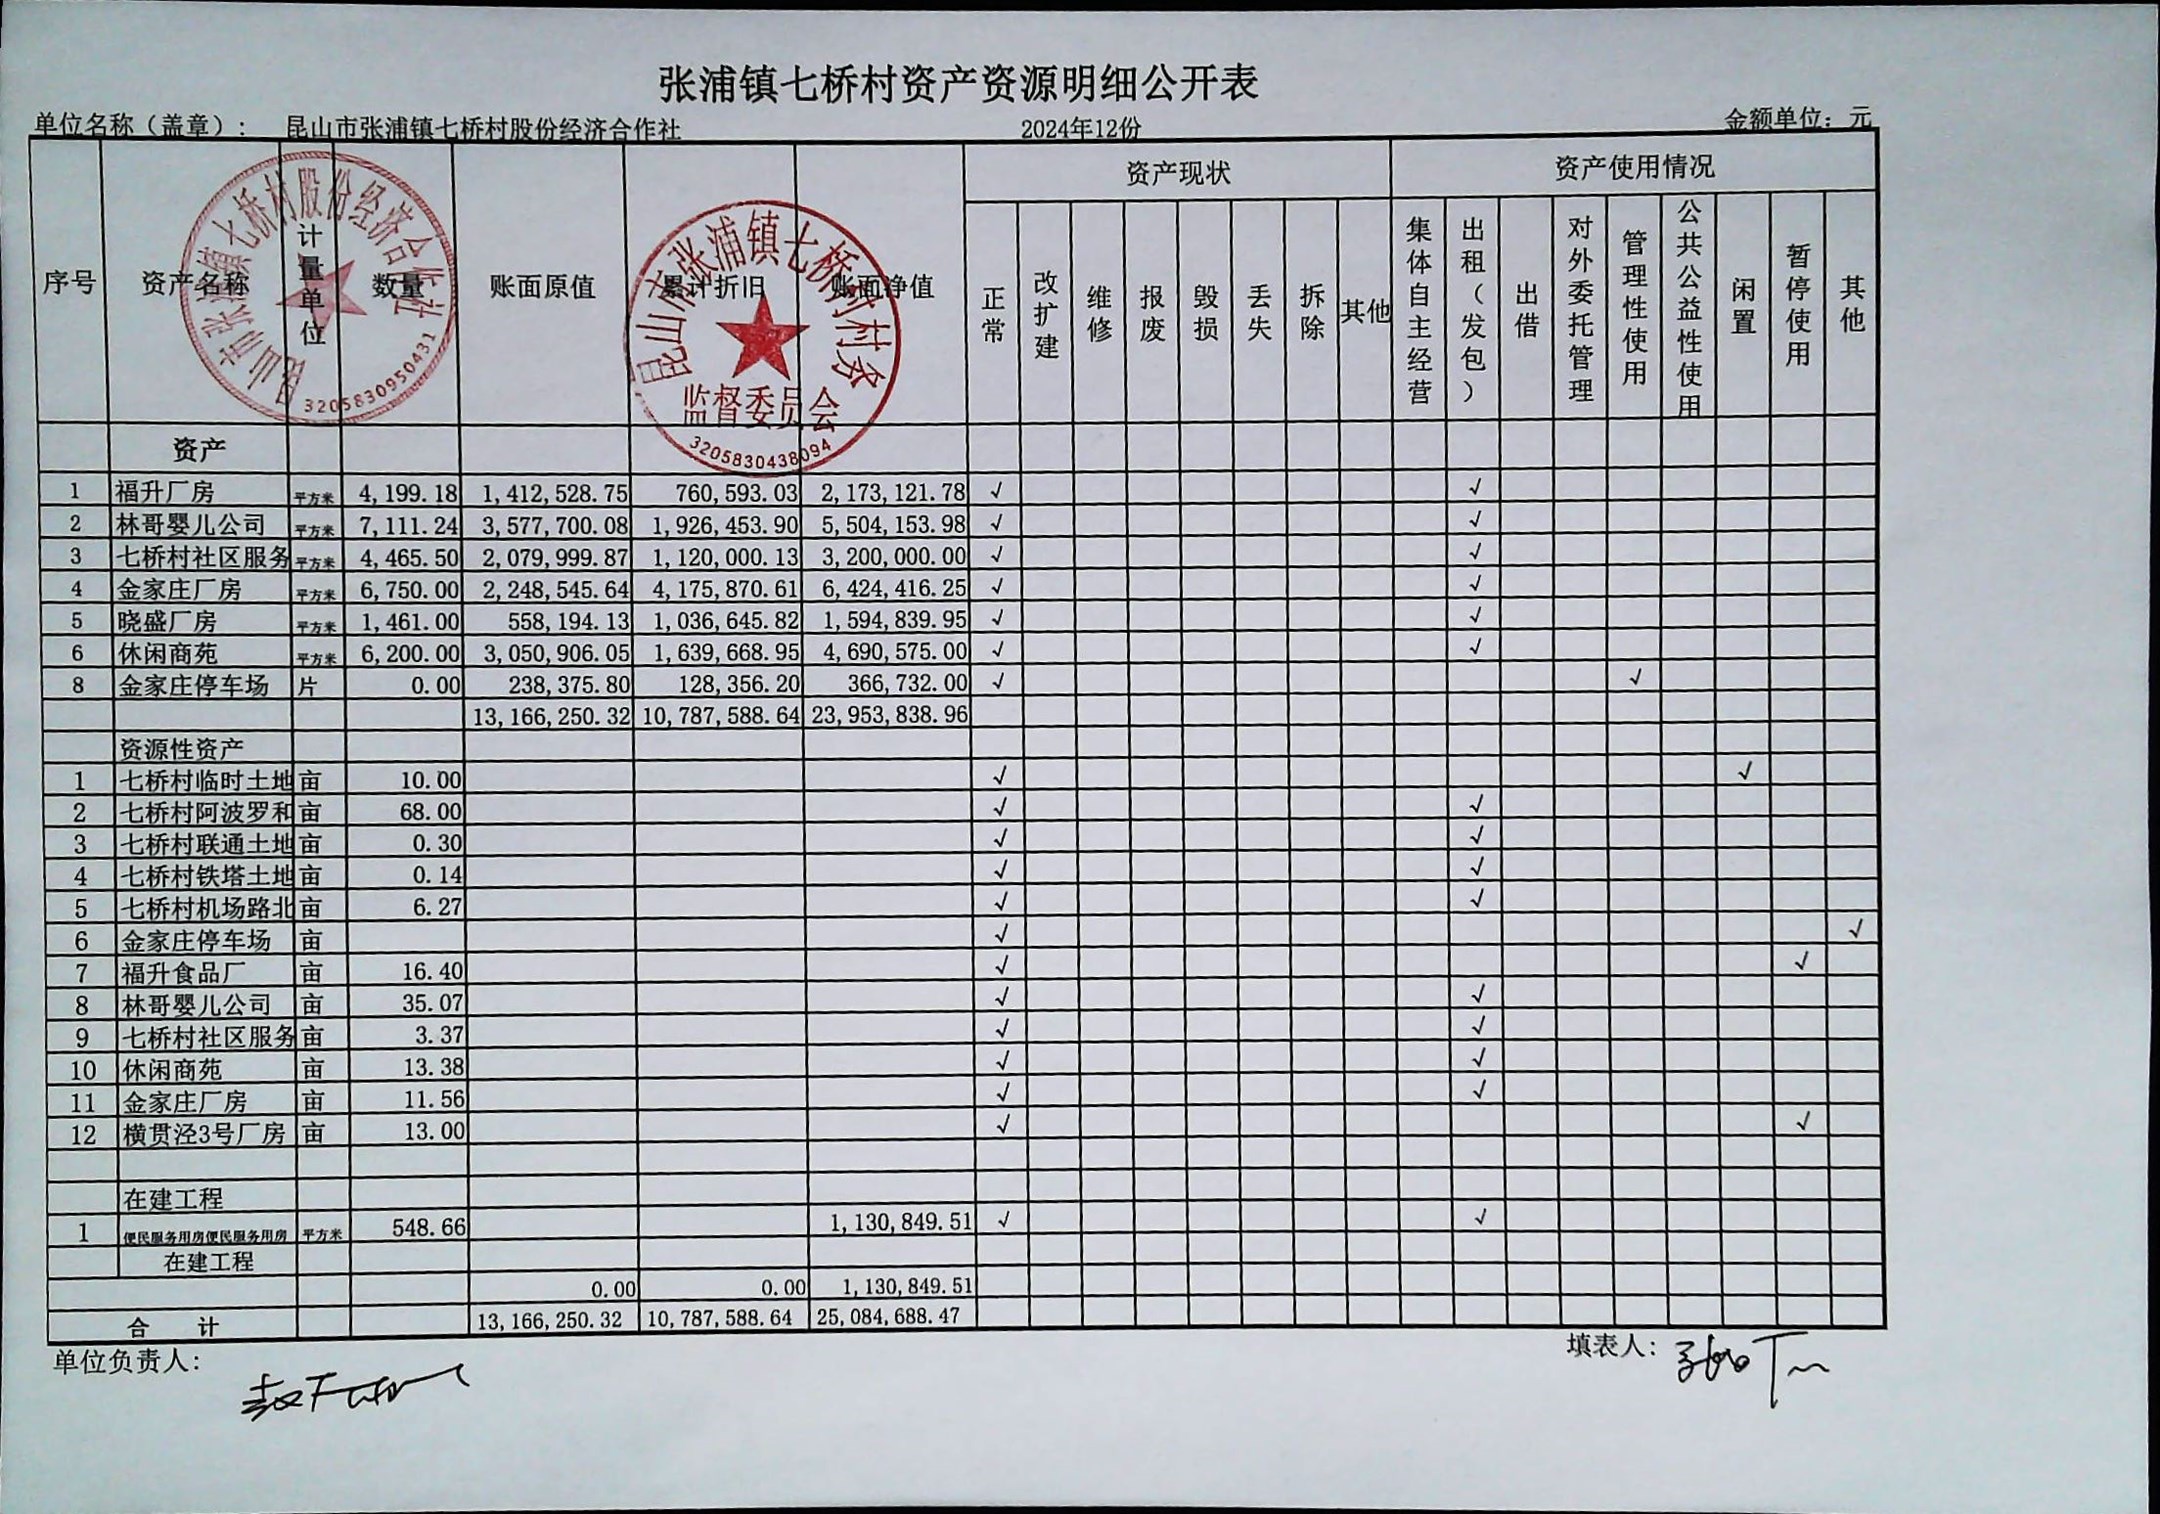 张浦镇七桥村资产资源明细公开表
单位名称（盖章）： 昆山市张浦镇七桥村股份经济合作社 2024年12份 金额单位：元
序号 资产名称 计量单位 数量 账面原值 累计折旧 账面净值 资产现状 资产使用情况
正常 改扩建 维修 报废 毁损 丢失 拆除 其他 集体自主经营 出租（发包） 出借 对外委托管理 管理性使用 公共公益性使用 闲置 暂停使用 其他
昆山市张浦镇七桥村股份经济合作社
3205830950431
昆山市张浦镇七桥村村务
监督委员会
3205830438094
资产
1 福升厂房 平方米 4,199.18 1,412,528.75 760,593.03 2,173,121.78 √ √
2 林哥婴儿公司 平方米 7,111.24 3,577,700.08 1,926,453.90 5,504,153.98 √ √
3 七桥村社区服务 平方米 4,465.50 2,079,999.87 1,120,000.13 3,200,000.00 √ √
4 金家庄厂房 平方米 6,750.00 2,248,545.64 4,175,870.61 6,424,416.25 √ √
5 晓盛厂房 平方米 1,461.00 558,194.13 1,036,645.82 1,594,839.95 √ √
6 休闲商苑 平方米 6,200.00 3,050,906.05 1,639,668.95 4,690,575.00 √ √
8 金家庄停车场 片 0.00 238,375.80 128,356.20 366,732.00 √ √
13,166,250.32 10,787,588.64 23,953,838.96
资源性资产
1 七桥村临时土地 亩 10.00 √ √
2 七桥村阿波罗和 亩 68.00 √ √
3 七桥村联通土地 亩 0.30 √ √
4 七桥村铁塔土地 亩 0.14 √ √
5 七桥村机场路北 亩 6.27 √ √
6 金家庄停车场 亩 √ √
7 福升食品厂 亩 16.40 √ √
8 林哥婴儿公司 亩 35.07 √ √
9 七桥村社区服务 亩 3.37 √ √
10 休闲商苑 亩 13.38 √ √
11 金家庄厂房 亩 11.56 √ √
12 横贯泾3号厂房 亩 13.00 √ √
在建工程
1 便民服务用房便民服务用房 平方米 548.66 1,130,849.51 √ √
在建工程
0.00 0.00 1,130,849.51
合 计 13,166,250.32 10,787,588.64 25,084,688.47
单位负责人： 填表人：